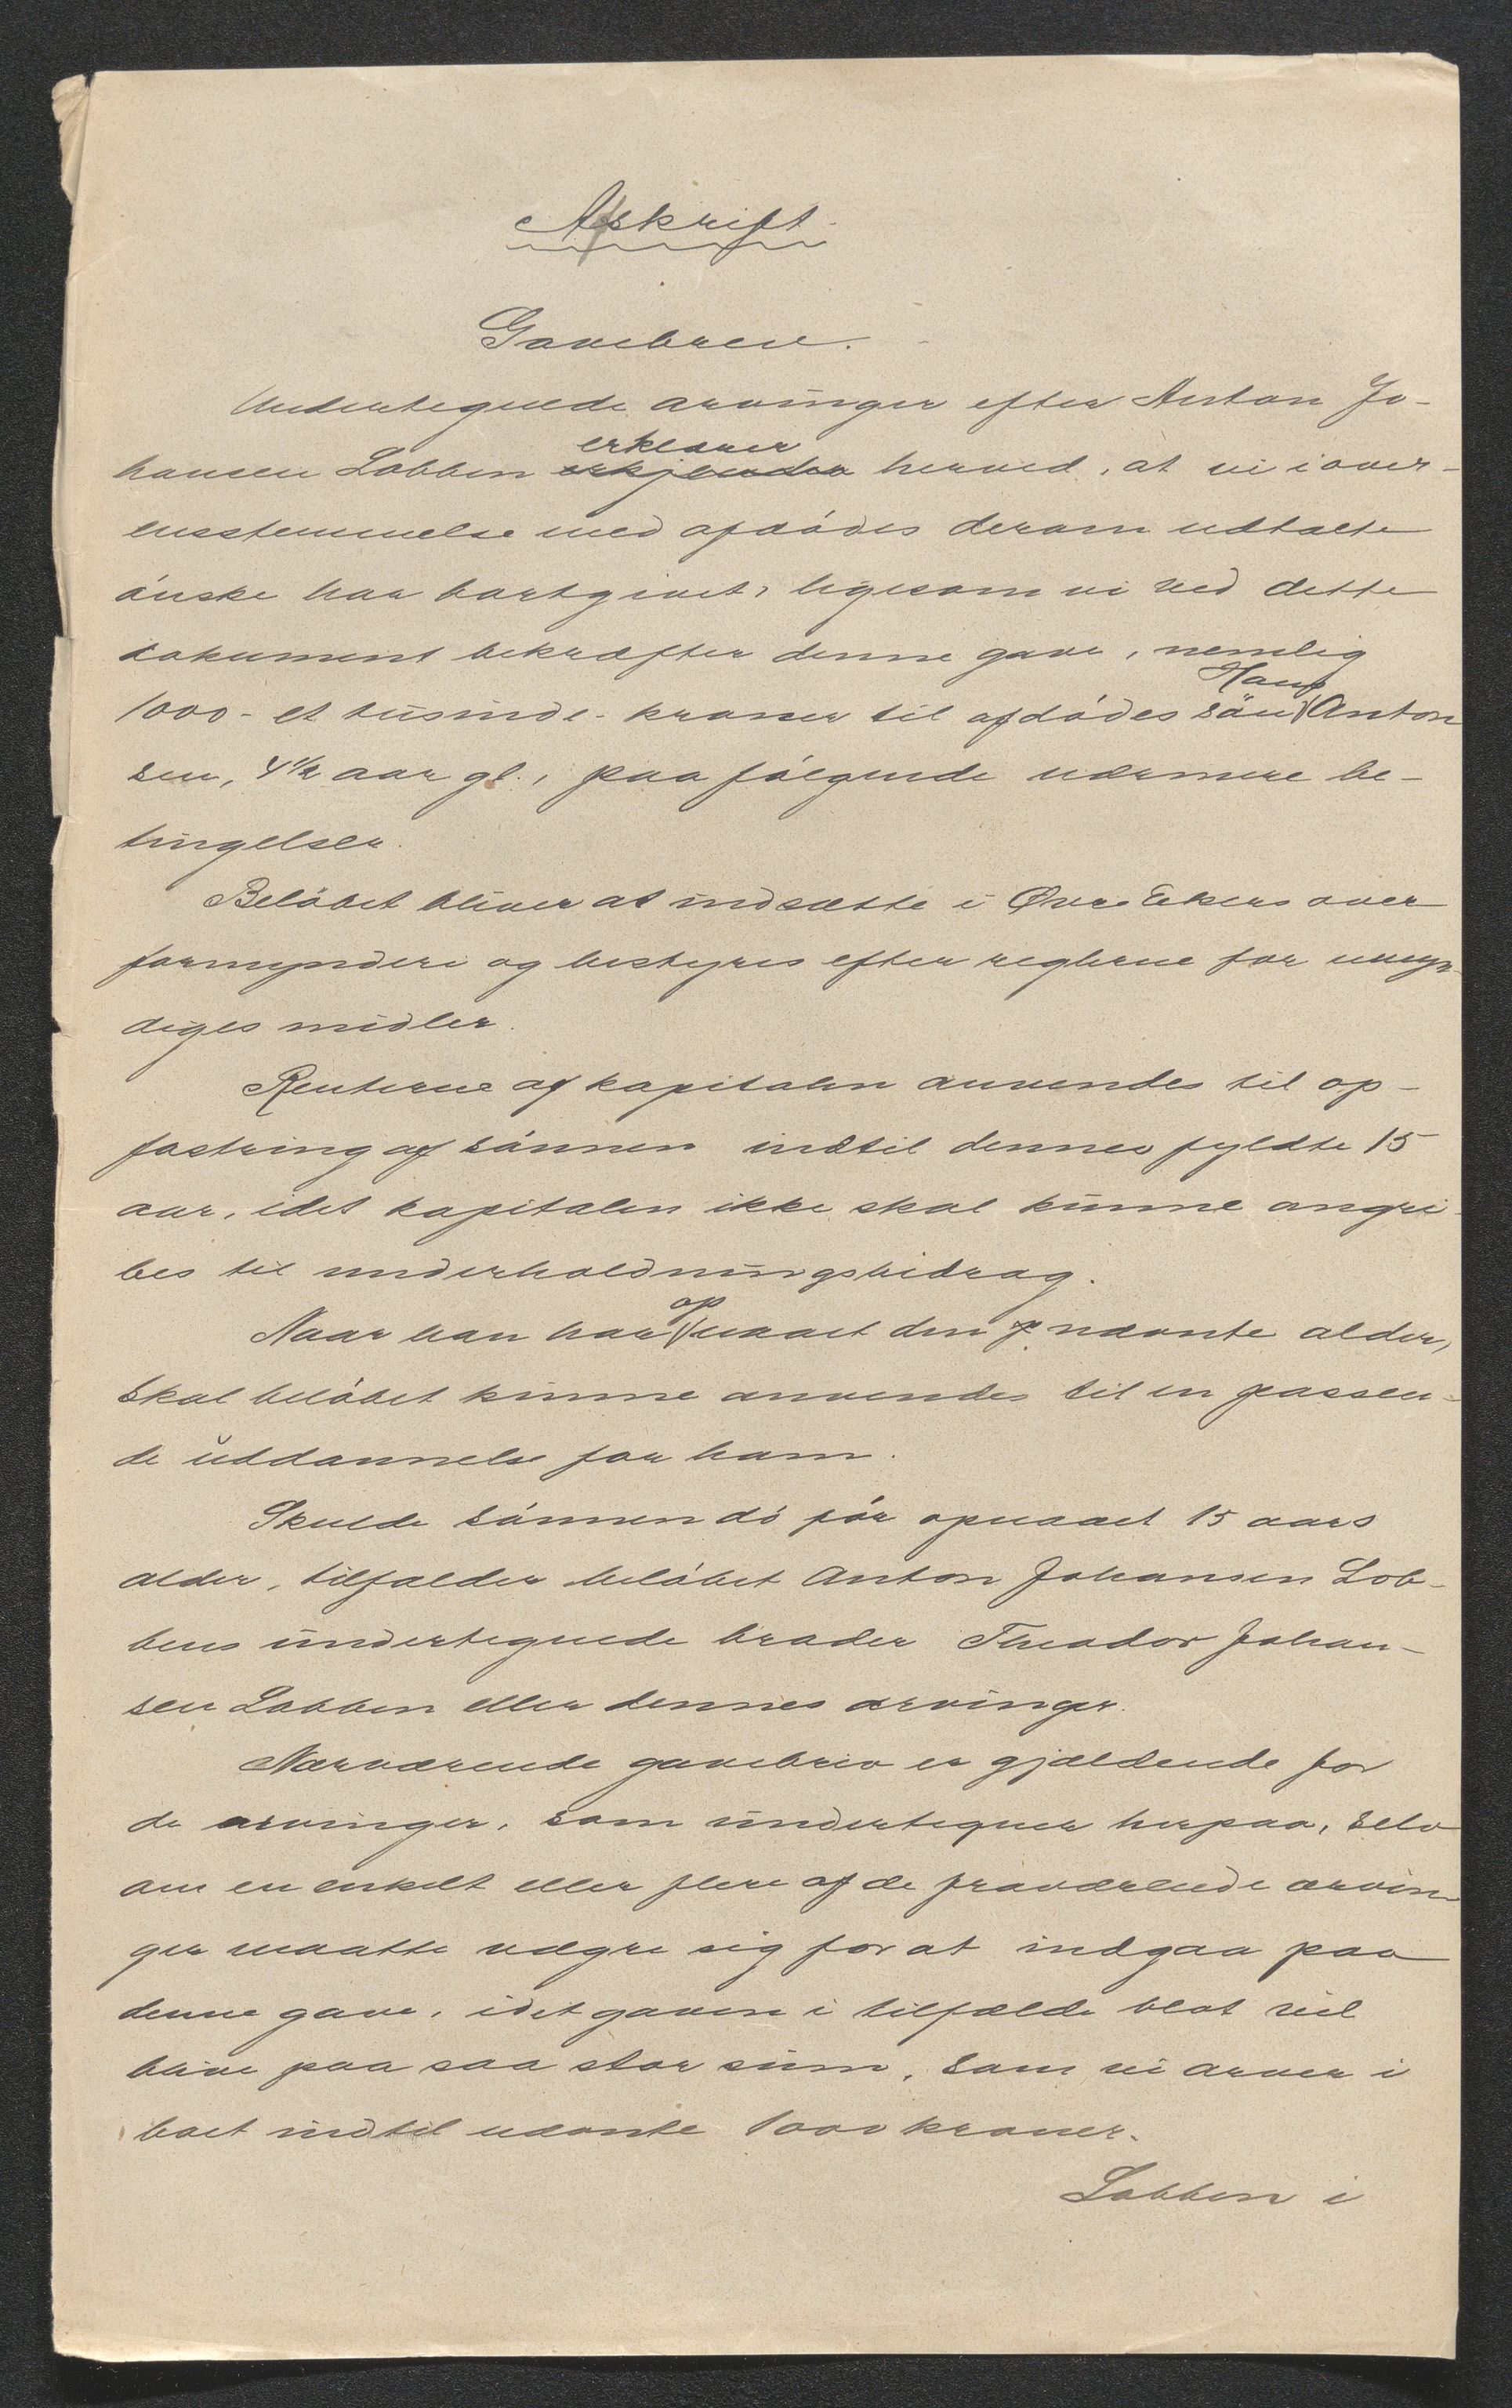 Afskrift.
Gavebrev.
Undertegnede arvinger efter Anton Jo-
hansen Lobben erkjender erklærer herved, at vi i over-
ensstemmelse med afdödes derom udtalte
önske har bortgivet, ligesom vi ved dette
dokument bekræfter denne gave, nemlig
1000 - et tusinde - kroner til afdödes sön Hans Anton
sen, 4 1/2 aar gl., paa fölgende nærmere be-
tingelser.
Belöbet bliver at indsætte i Øvre Ekers over
formynderi og bestyres efter reglerne for umyn-
diges midler.
Renterne af kapitalen anvendes til op-
fostring af sönnen indtil dennes fyldte 15
aar, idet kapitalen ikke skal kunne angri-
bes til underholdningsbidrag.
Naar han har opnaaet den nævnte alder,
skal belöbet kunne anvendes til en passen-
de uddannelse for ham.
Skulde sönnen dö för opnaaet 15 aars
alder, tilfalder belöbet Anton Johansen Lob-
bens undertegnede broder Theodor Johan-
sen Lobben eller dennes arvinger.
Nærværende gavebrev er gjældende for
de arvinger, som undertegner herpaa, selv
om en enkelt eller flere af de fraværende arvin
ger maatte vægre sig for at indgaa paa
denne gave, idet gaven i tilfælde blot vil
blive paa saa stor sum, som vi arver i
boet indtil nævnte 1000 kroner.
Lobben i